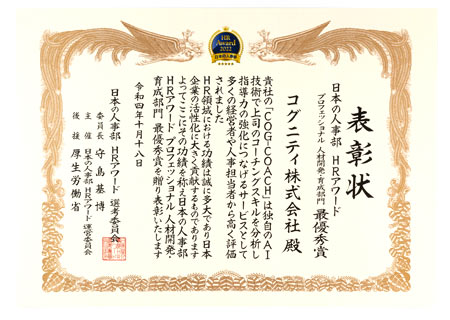 HR
Award
2022
日本の人事部
表彰状
日本の人事部 HRアワード
プロフェッショナル 人材開発・育成部門 最優秀賞
コグニティ株式会社 殿
貴社の「COG-COACH」は独自のAI
技術で上司のコーチングスキルを分析し
指導力の強化につなげるサービスとして
多くの経営者や人事担当者から高く評価
されました
HR領域における功績は誠に多大であり日本
企業の活性化に大きく貢献するものであります
よってここにその功績を称え日本の人事部
HRアワード プロフェッショナル 人材開発・
育成部門 最優秀賞を贈り表彰いたします
令和四年十月十八日
日本の人事部 HRアワード 選考委員会
委員長 守島基博
主催 日本の人事部 HRアワード 運営委員会
後援 厚生労働省